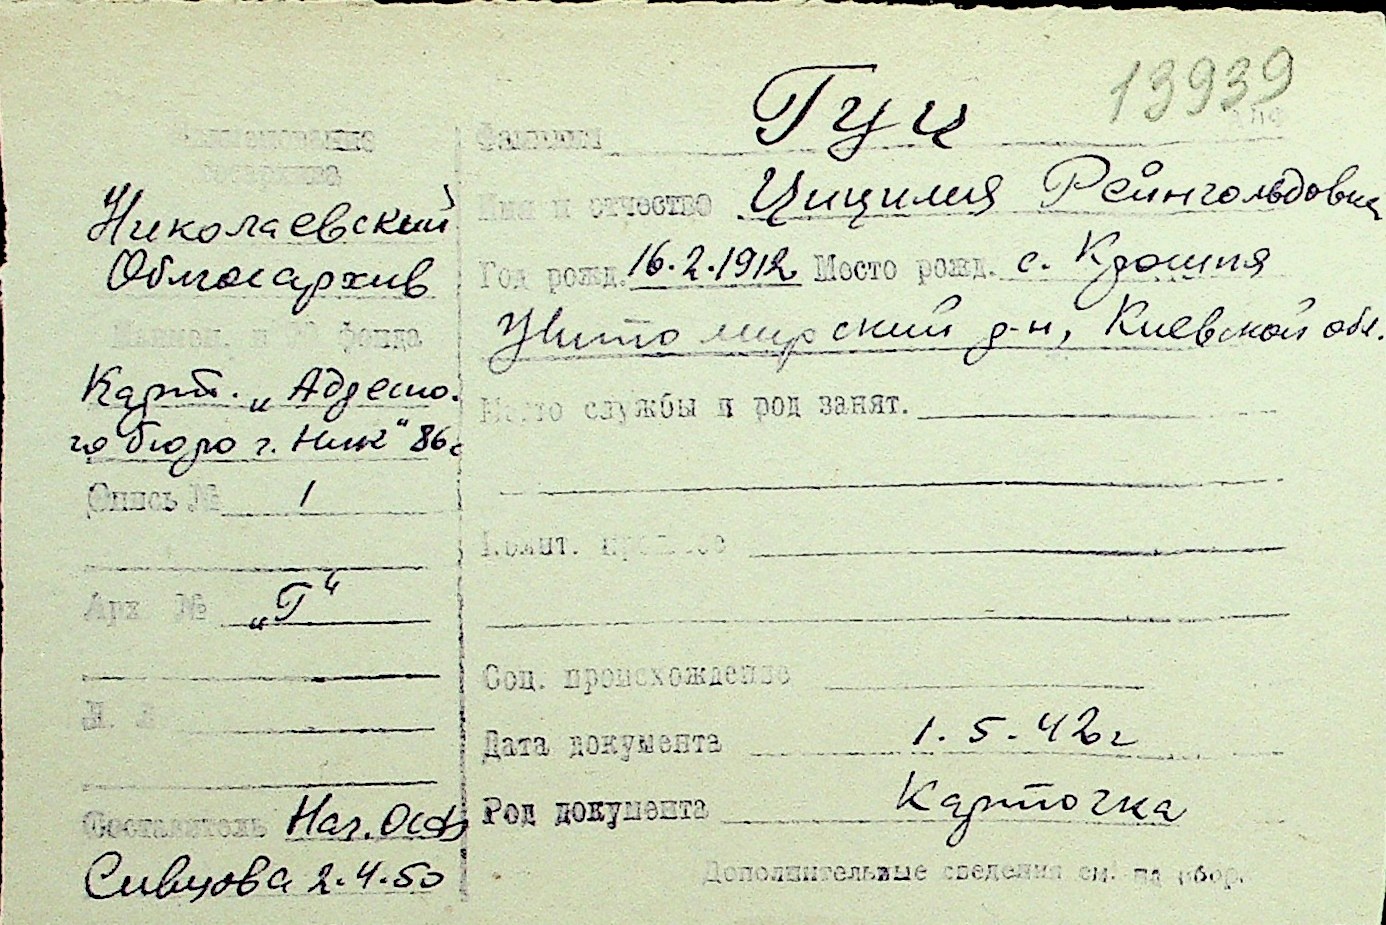 13939
Фамилия Гуц
Наименование
госархива
Николаевский
Облгосархив
Имя и отчество Цицилия Рейнгольдовна
Год рожд. 16.2.1912 Место рожд. с. Крошня
Житомирский р-н, Киевской обл.
Наимен. и № фонда
Карт. „Адресно-
го бюро г. Ник“ 86с
Место службы и род занят.
Опись № 1
Арх № „Г“
Соц. происхождение
Дата документа 1.5.42г
Род документа Карточка
Составитель Нач. Осф
Сивцова 2.4.50
Дополнительные сведения см. на обор.